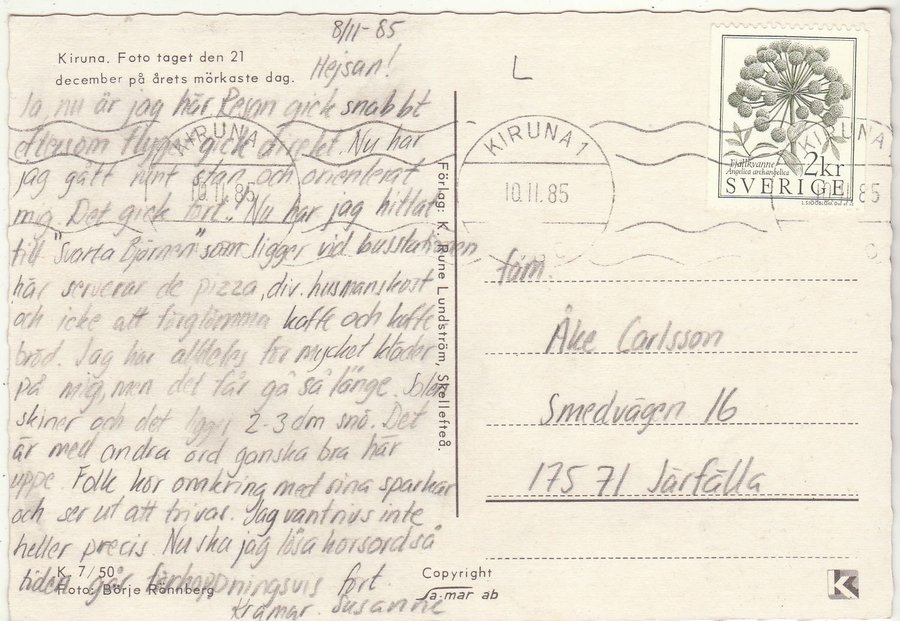 8/11-85
Kiruna. Foto taget den 21
december på årets mörkaste dag.
Hejsan!
L
Ja, nu är jag här. Resan gick snabbt
eftersom flyget gick direkt. Nu har
jag gått runt stan och orienterat
mig. Det gick fort. Nu har jag hittat
till "Svarta Björnen" som ligger vid busstationen
här serverar de pizza, div. husmanskost
och icke att förglömma kaffe och kaffe
bröd. Jag har alldeles för mycket kläder
på mig, men det får gå så länge. Solen
skiner och det ligger 2-3 dm snö. Det
är med andra ord ganska bra här
uppe. Folk kör omkring med sina sparkar
och ser ut att trivas. Jag vantrivs inte
heller precis. Nu ska jag lösa korsord så
tiden går förhoppningsvis fort.
Kramar. Susanne
K. 7/50
Foto: Börje Rönnberg
Förlag: K. Rune Lundström, Skellefteå.
Copyright
sa-mar ab
KIRUNA
10.11.85
KIRUNA 1
10.11.85
KIRUNA
11.85
Fjällkvanne
Angelica archangelica
2kr
SVERIGE
fam.
Åke Carlsson
Smedvägen 16
175 71 Järfälla
K